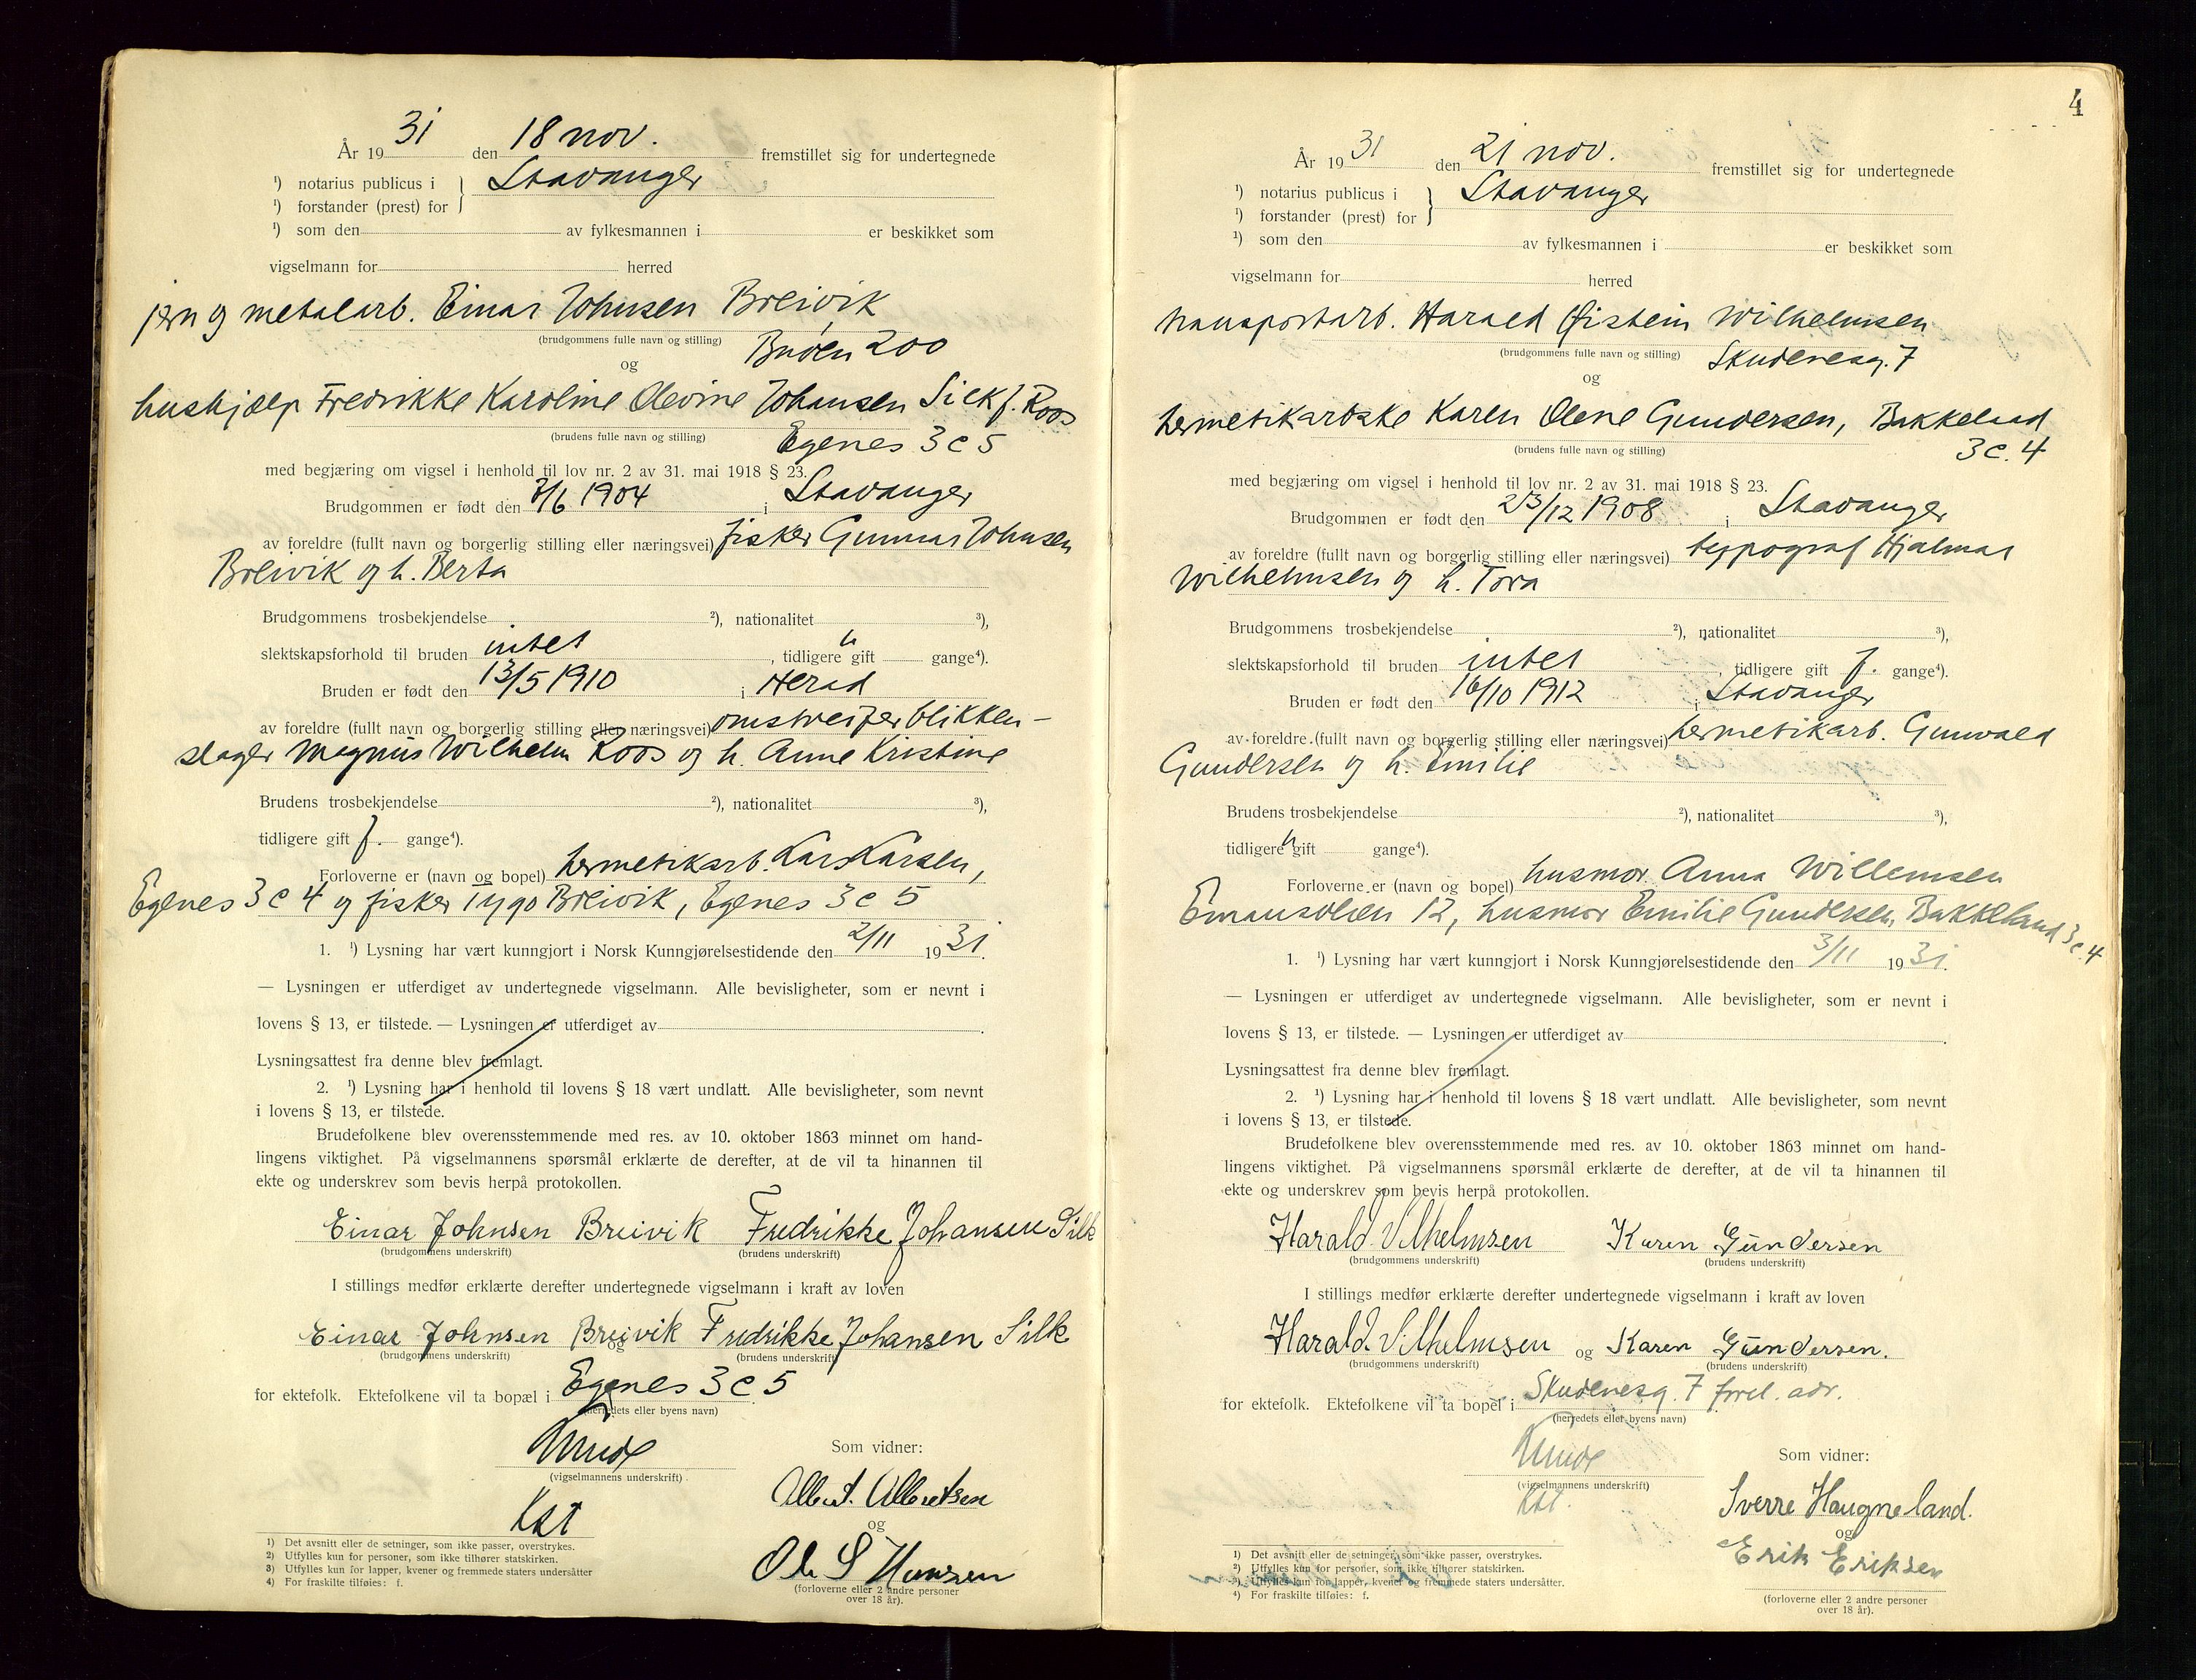 År 1931 den 18 nov. fremstillet sig for undertegnede
¹) notarius publicus i } Stavanger
¹) forstander (prest) for
¹) som den av fylkesmannen i er beskikket som
vigselmann for herred
jern og metalarb. Einar Johnsen Breivik
(brudgommens fulle navn og stilling)
Buøen 200
og
hushjælp Fredrikke Karoline Olevine Johansen Silk f. Roos
(brudens fulle navn og stilling)
Egenes 3 c 5
med begjæring om vigsel i henhold til lov nr. 2 av 31. mai 1918 § 23.
Brudgommen er født den 7/6 1904 i Stavanger
av foreldre (fullt navn og borgerlig stilling eller næringsvei) fisker Gunnar Johnsen
Breivik og h. Berta
Brudgommens trosbekjendelse ²), nationalitet ³),
slektskapsforhold til bruden intet, tidligere u gift gange⁴).
Bruden er født den 13/5 1910 i Herad
av foreldre (fullt navn og borgerlig stilling eller næringsvei) omstreiferblikken-
slager Magnus Wilhelm Roos og h. Anne Kristine
Brudens trosbekjendelse ²), nationalitet ³),
tidligere gift f. gange⁴).
Forloverne er (navn og bopel) hermetikarb. Lars Larsen,
Egenes 3 c 4 og fisker Tygo Breivik, Egenes 3 c 5
1. ¹) Lysning har vært kunngjort i Norsk Kunngjørelsestidende den 2/11 1931.
— Lysningen er utferdiget av undertegnede vigselmann. Alle bevisligheter, som er nevnt i
lovens § 13, er tilstede. — Lysningen er utferdiget av .
Lysningsattest fra denne blev fremlagt.
2. ¹) Lysning har i henhold til lovens § 18 vært undlatt. Alle bevisligheter, som nevnt
i lovens § 13, er tilstede.
Brudefolkene blev overensstemmende med res. av 10. oktober 1863 minnet om hand-
lingens viktighet. På vigselmannens spørsmål erklærte de derefter, at de vil ta hinannen til
ekte og underskrev som bevis herpå protokollen.
Einar Johnsen Breivik Fredrikke Johansen Silk
(brudgommens underskrift) (brudens underskrift)
I stillings medfør erklærte derefter undertegnede vigselmann i kraft av loven
Einar Johnsen Breivik og Fredrikke Johansen Silk
(brudgommens underskrift) (brudens underskrift)
for ektefolk. Ektefolkene vil ta bopæl i Egenes 3 c 5
(herredets eller byens navn)
(vigselmannens underskrift)
Kst
Som vidner:
Albert. Albretsen
og
Ole S Hansen
(forloverne eller 2 andre personer
over 18 år).
¹) Det avsnitt eller de setninger, som ikke passer, overstrykes.
²) Utfylles kun for personer, som ikke tilhører statskirken.
³) Utfylles kun for lapper, kvener og fremmede staters undersåtter
⁴) For fraskilte tilføies: f.
4
År 1931 den 21 nov. fremstillet sig for undertegnede
¹) notarius publicus i } Stavanger
¹) forstander (prest) for
¹) som den av fylkesmannen i er beskikket som
vigselmann for herred
transportarb. Harald Øistein Wilhelmsen
(brudgommens fulle navn og stilling)
Skudenesg. 7
og
hermetikarbske Karen Olene Gundersen, Bakkeland
(brudens fulle navn og stilling)
3 c. 4
med begjæring om vigsel i henhold til lov nr. 2 av 31. mai 1918 § 23.
Brudgommen er født den 23/12 1908 i Stavanger
av foreldre (fullt navn og borgerlig stilling eller næringsvei) typograf Hjalmar
Wilhelmsen og h. Tora
Brudgommens trosbekjendelse ²), nationalitet ³),
slektskapsforhold til bruden intet tidligere gift f. gange⁴).
Bruden er født den 16/10 1912 i Stavanger
av foreldre (fullt navn og borgerlig stilling eller næringsvei) hermetikarb. Gunvald
Gundersen og h. Emilie
Brudens trosbekjendelse ²), nationalitet ³),
tidligere u gift gange⁴).
Forloverne er (navn og bopel) husmor Anna Willemsen
Emausveien 12, husmor Emilie Gundersen, Bakkeland 3 c. 4
1. ¹) Lysning har vært kunngjort i Norsk Kunngjørelsestidende den 3/11 1931.
— Lysningen er utferdiget av undertegnede vigselmann. Alle bevisligheter, som er nevnt i
lovens § 13, er tilstede. — Lysningen er utferdiget av .
Lysningsattest fra denne blev fremlagt.
2. ¹) Lysning har i henhold til lovens § 18 vært undlatt. Alle bevisligheter, som nevnt
i lovens § 13, er tilstede.
Brudefolkene blev overensstemmende med res. av 10. oktober 1863 minnet om hand-
lingens viktighet. På vigselmannens spørsmål erklærte de derefter, at de vil ta hinannen til
ekte og underskrev som bevis herpå protokollen.
Harald Vilhelmsen Karen Gundersen
(brudgommens underskrift) (brudens underskrift)
I stillings medfør erklærte derefter undertegnede vigselmann i kraft av loven
Harald Vilhelmsen og Karen Gundersen.
(brudgommens underskrift) (brudens underskrift)
for ektefolk. Ektefolkene vil ta bopel i Skudenesg. 7 forel. adr.
(herredets eller byens navn)
(vigselmannens underskrift)
Kst.
Som vidner:
Sverre Haugneland.
og
Erik Eriksen
(forloverne eller 2 andre personer
over 18 år).
¹) Det avsnitt eller de setninger, som ikke passer, overstrykes.
²) Utfylles kun for personer, som ikke tilhører statskirken.
³) Utfylles kun for lapper, kvener og fremmede staters undersåtter.
⁴) For fraskilte tilføies: f.